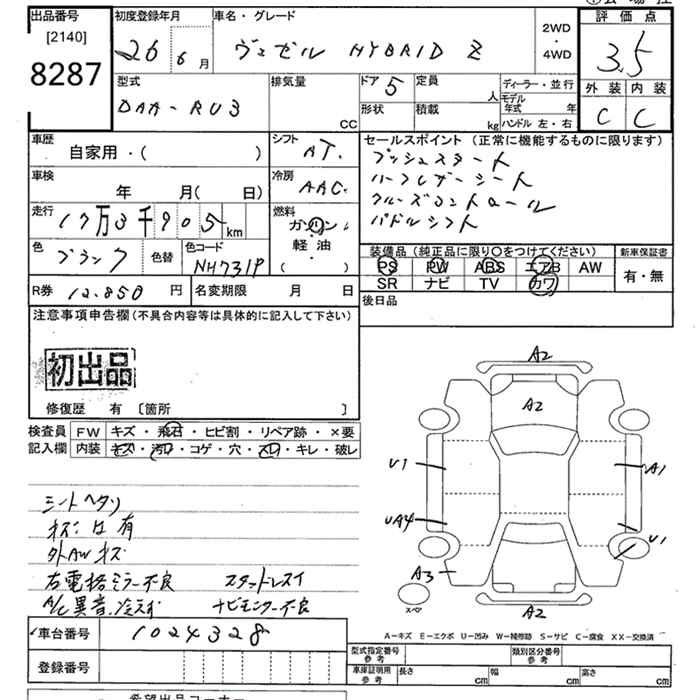 出品番号 初度登録年月 車名・グレード 評価点
[2140] 8287 26 6月 ヴェゼル HYBRID Z 2WD・4WD 3.5
型式 排気量 ドア 5 定員 人 ディーラー・並行 外装 内装
DAA-RU3 CC 形状 積載 kg モデル年式 年 ハンドル 左・右 C C
車歴 自家用・( ) シフト AT. セールスポイント (正常に機能するものに限ります)
プッシュスタート
車検 年 月( 日) 冷房 AAC. ハーフレザーシート
クルーズコントロール
走行 17万3千905 km 燃料 ガソリン・軽油・( ) パドルシフト
色 ブラック 色替 色コード NH731P 装備品 (純正品に限り○をつけてください) 新車保証書
PS PW ABS エアB AW 有・無
R券 12,850 円 名変期限 月 日 SR ナビ TV カワ
注意事項申告欄 (不具合内容等は具体的に記入して下さい) 後日品
初出品
修復歴 有 〔箇所 〕
検査員 FW キズ・飛石・ヒビ割・リペア跡・×要
記入欄 内装 キズ・汚れ・コゲ・穴・スレ・キレ・破レ
A2
A2
U1 A1
UA4 U1
A3
スペ A2
シートヘタリ
キズ凹有
外AWキズ
右電格ミラー不良 スタットレスイ
A/C異音.冷えず ナビモニター不良
A-キズ E-エクボ U-凹み W-補修跡 S-サビ C-腐食 XX-交換済
車台番号 1024328 型式指定番号 参考 類別区分番号 参考
登録番号 車庫証明用 参考 長さ cm 幅 cm 高さ cm
希望出品コーナー